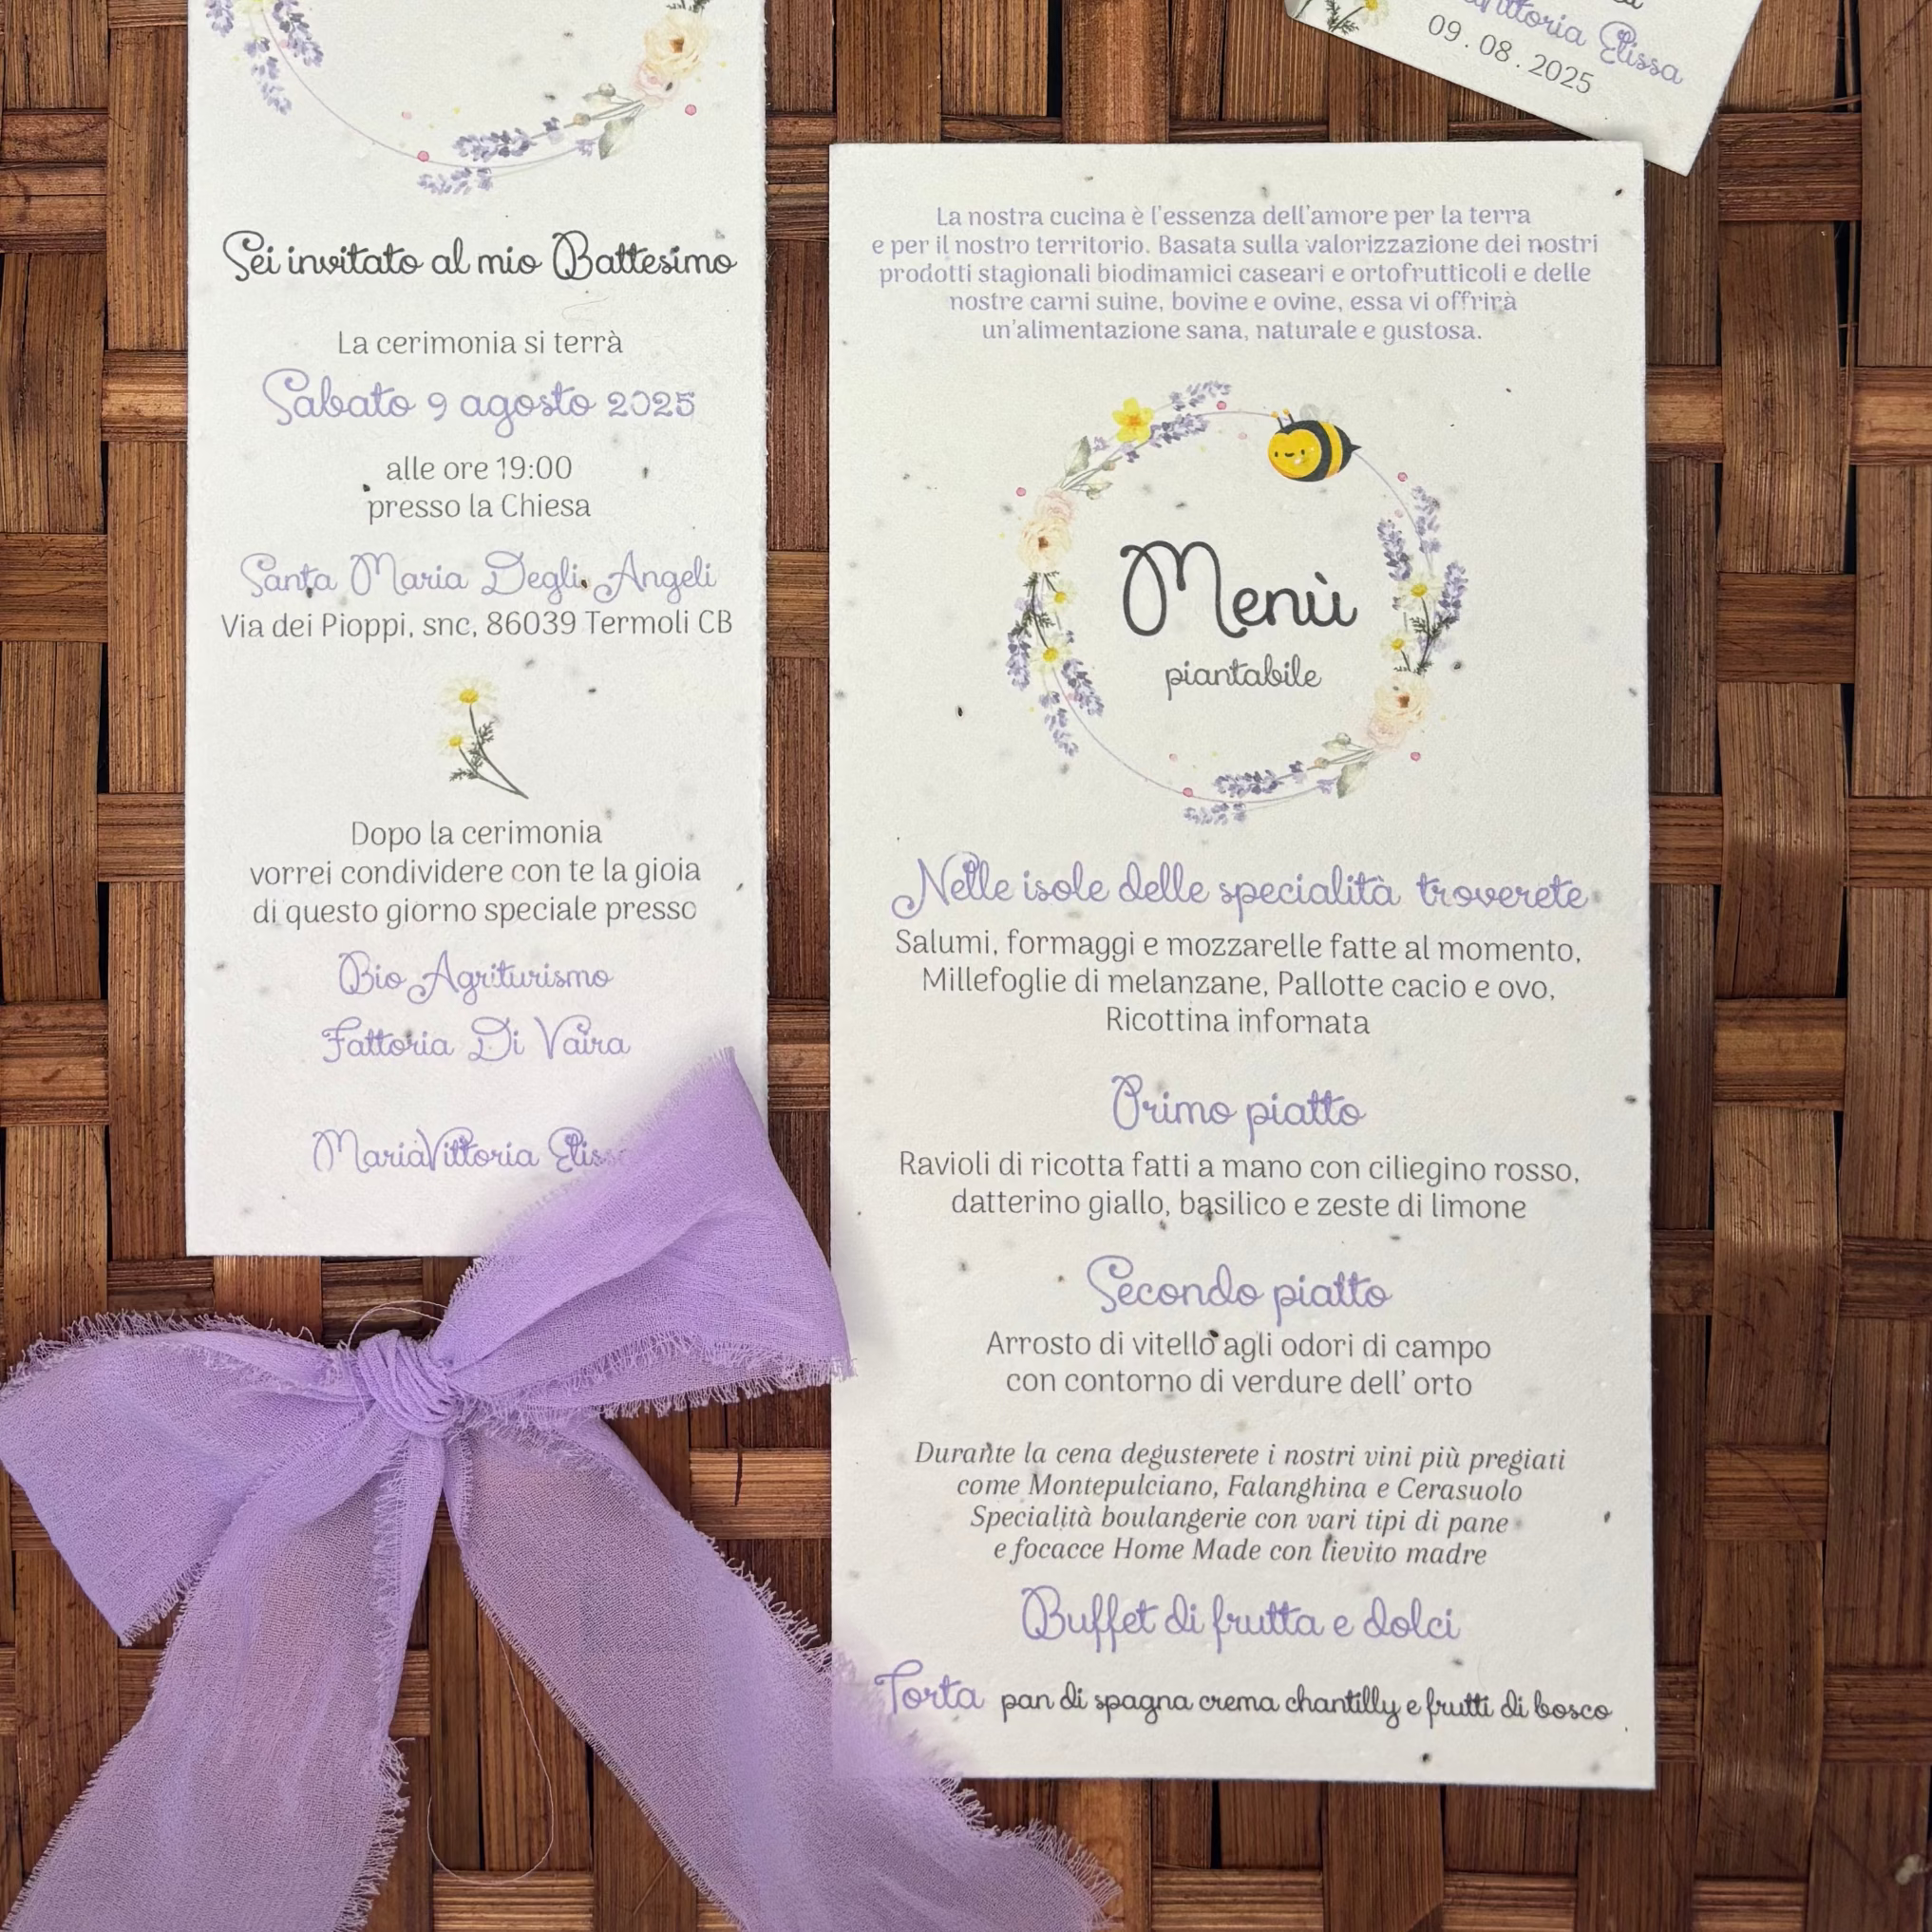 Sei invitato al mio Battesimo
La cerimonia si terrà
Sabato 9 agosto 2025
alle ore 19:00
presso la Chiesa
Santa Maria Degli Angeli
Via dei Pioppi, snc, 86039 Termoli CB
Dopo la cerimonia
vorrei condividere con te la gioia
di questo giorno speciale presso
Bio Agriturismo
Fattoria Di Vaira
MariaVittoria
Elissa
09.08.2025
La nostra cucina è l'essenza dell'amore per la terra
e per il nostro territorio. Basata sulla valorizzazione dei nostri
prodotti stagionali biodinamici caseari e ortofrutticoli e delle
nostre carni suine, bovine e ovine, essa vi offrirà
un'alimentazione sana, naturale e gustosa.
Menù
piantabile
Nelle isole delle specialità troverete
Salumi, formaggi e mozzarelle fatte al momento,
Millefoglie di melanzane, Pallotte cacio e ovo,
Ricottina infornata
Primo piatto
Ravioli di ricotta fatti a mano con ciliegino rosso,
datterino giallo, basilico e zeste di limone
Secondo piatto
Arrosto di vitello agli odori di campo
con contorno di verdure dell' orto
Durante la cena degusterete i nostri vini più pregiati
come Montepulciano, Falanghina e Cerasuolo
Specialità boulangerie con vari tipi di pane
e focacce Home Made con lievito madre
Buffet di frutta e dolci
Torta pan di spagna crema chantilly e frutti di bosco